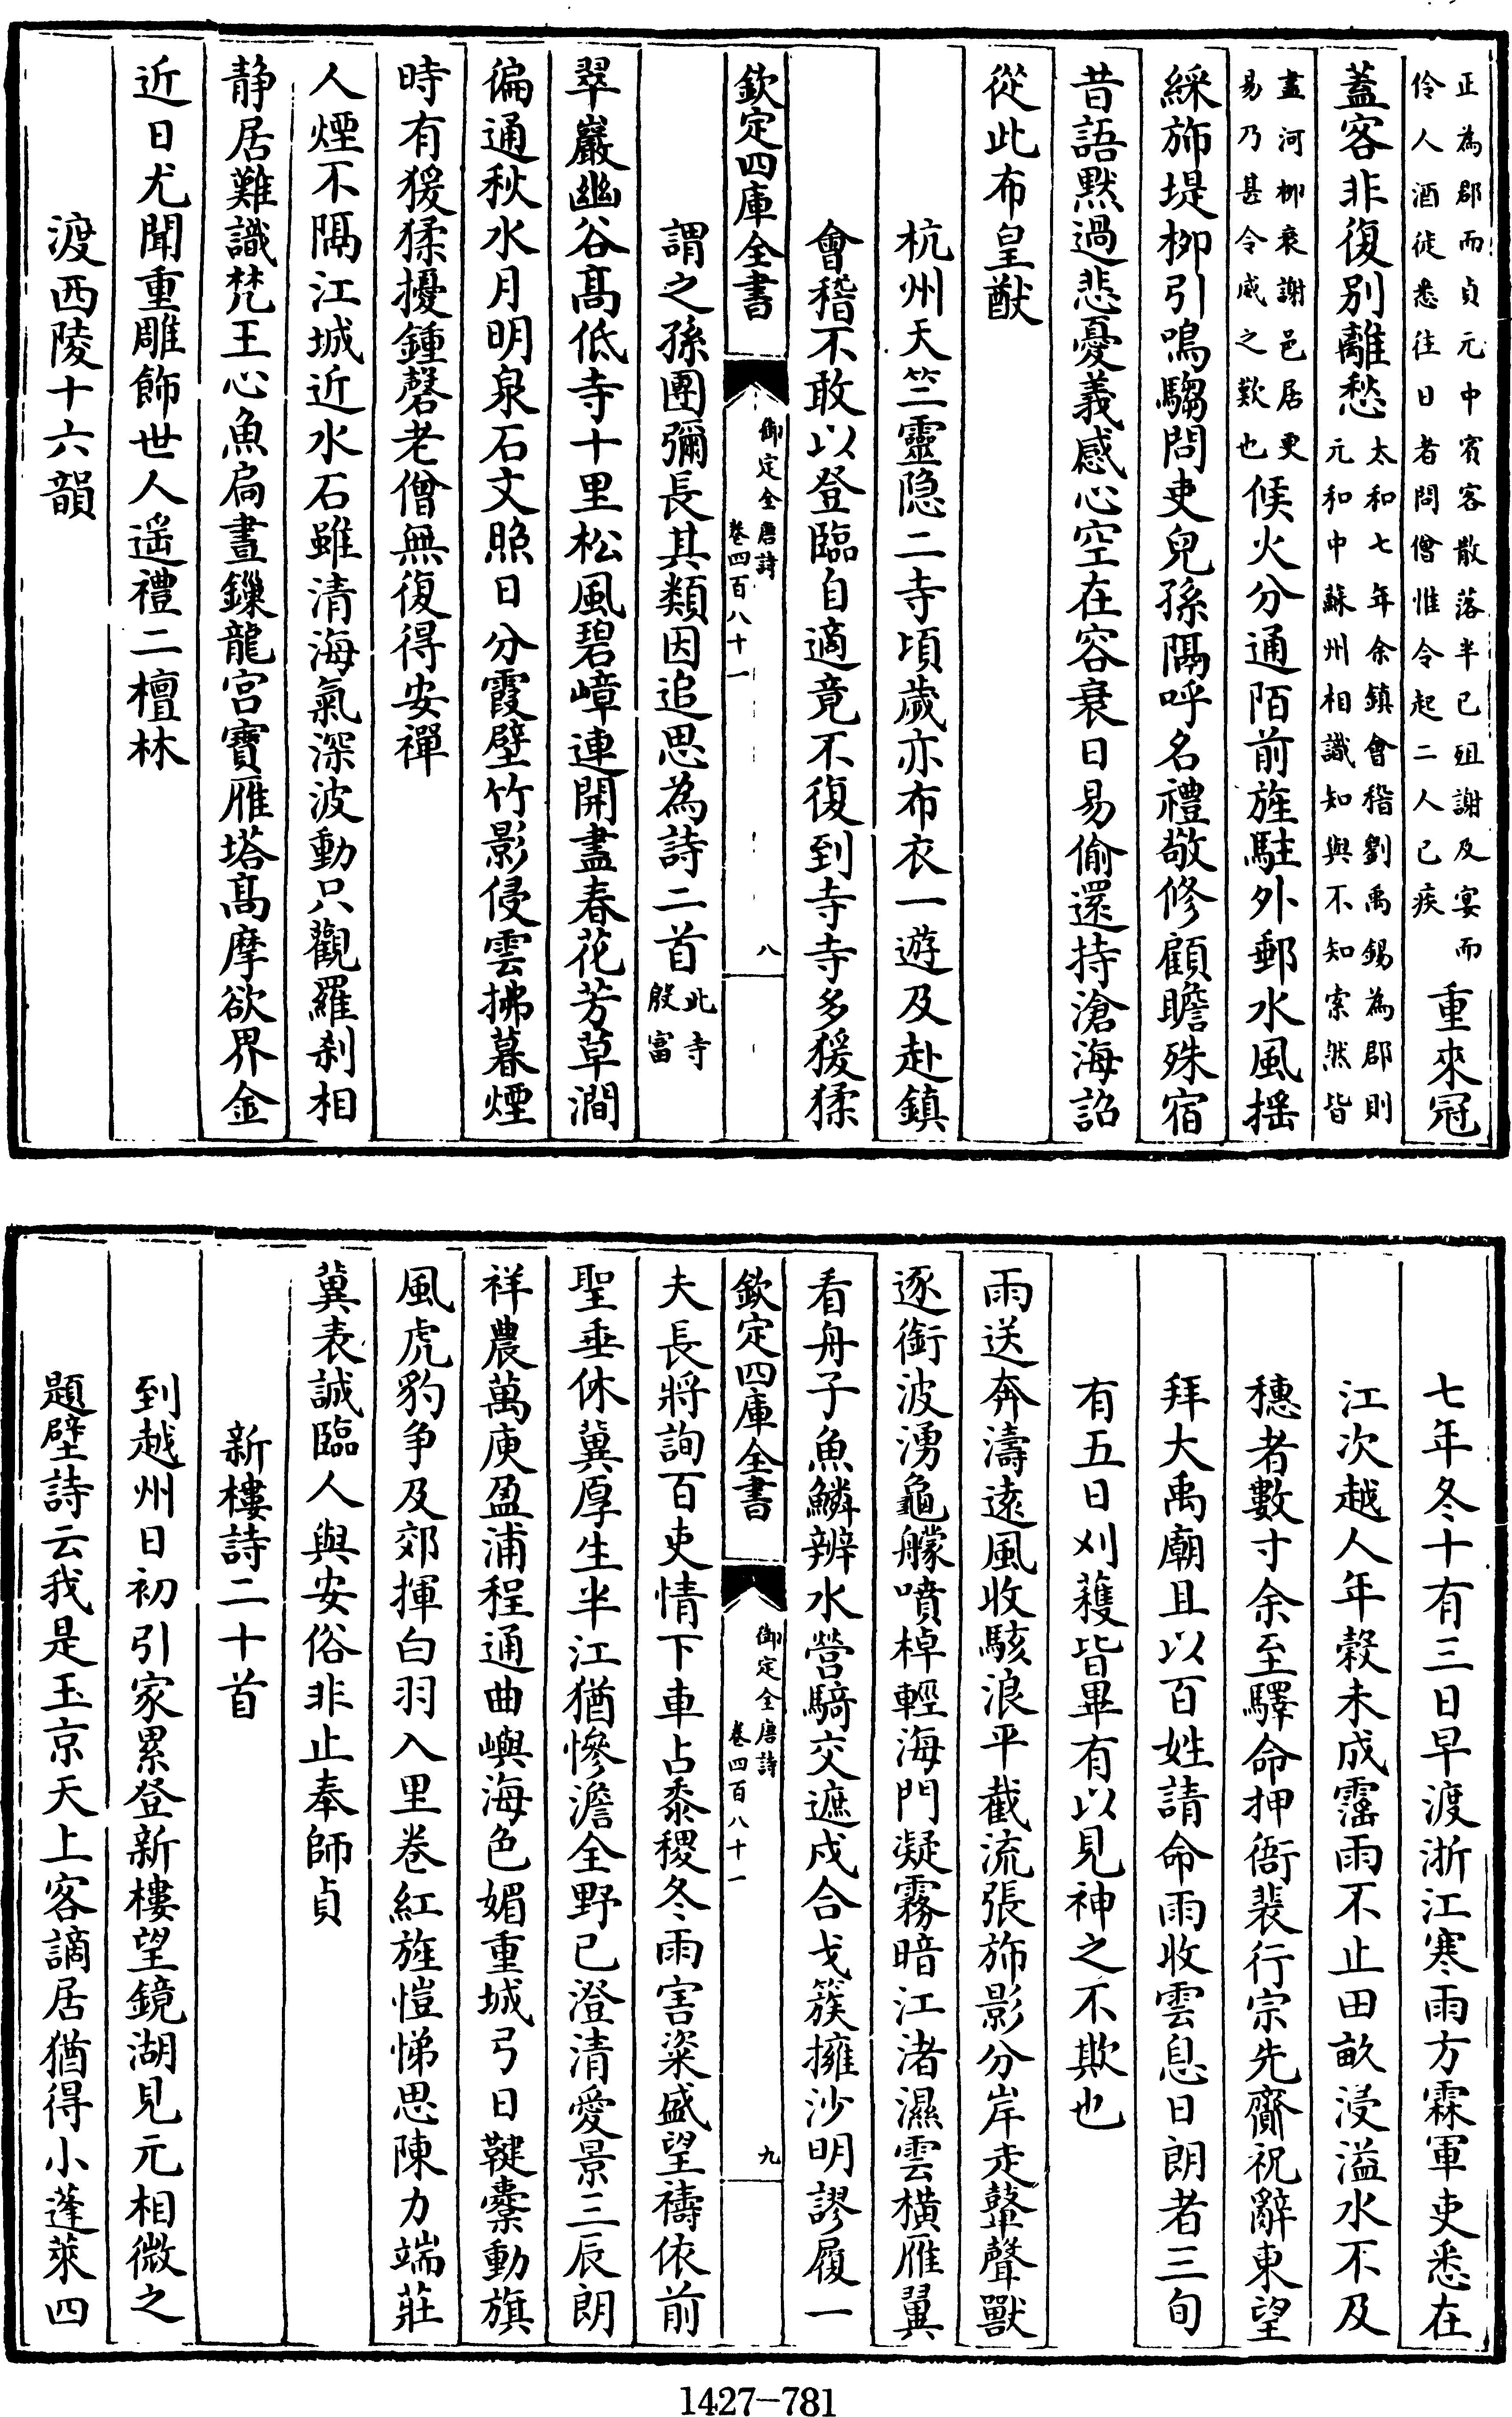 正為郡而貞元中賓客散落半已殂謝及宴而
伶人酒徒悉往日者問僧惟令起二人已疾
重來冠
蓋客非復别離愁
太和七年余鎮會稽劉禹錫為郡則
元和中蘇州相識知與不知索然皆
盡河柳衰謝邑居更
易乃甚令威之歎也
候火分通陌前旌駐外郵水風揺
綵斾堤柳引鳴騶問吏兒孫隔呼名禮敬修顧瞻殊宿
昔語黙過悲憂義感心空在容衰日易偷還持滄海詔
從此布皇猷
杭州天竺靈隐二寺頃歲亦布衣一遊及赴鎮
會稽不敢以登臨自適竟不復到寺寺多猨猱
欽定四庫全書
御定全唐詩
卷四百八十一
八
謂之孫團彌長其類因追思為詩二首
此寺
殷富
翠巖幽谷髙低寺十里松風碧嶂連開盡春花芳草澗
徧通秋水月明泉石文照日分霞壁竹影侵雲拂暮煙
時有猨猱擾鍾磬老僧無復得安禪
人煙不隔江城近水石雖清海氣深波動只觀羅刹相
静居難識梵王心魚扃晝鏁龍宫寶雁塔髙摩欲界金
近日尤聞重雕飾世人遥禮二檀林
渡西陵十六韻
七年冬十有三日早渡浙江寒雨方霖軍吏悉在
江次越人年榖未成霪雨不止田畝浸溢水不及
穗者數寸余至驛命押衙裴行宗先齎祝辭東望
拜大禹廟且以百姓請命雨收雲息日朗者三旬
有五日刈穫皆畢有以見神之不欺也
雨送奔濤遠風收駭浪平截流張斾影分岸走鼙聲獸
逐銜波湧龜艨噴棹輕海門凝霧暗江渚濕雲横雁翼
看舟子魚鱗辨水營騎交遮戍合戈簇擁沙明謬履一
欽定四庫全書
御定全唐詩
卷四百八十一
九
夫長將詢百吏情下車占黍稷冬雨害粢盛望禱依前
聖垂休冀厚生半江猶慘澹全野已澄清愛景三辰朗
祥農萬庾盈浦程通曲嶼海色媚重城弓日鞬櫜動旗
風虎豹争及郊揮白羽入里巻紅旌愷悌思陳力端莊
冀表誠臨人與安俗非止奉師貞
新樓詩二十首
到越州日初引家累登新樓望鏡湖見元相微之
題壁詩云我是玉京天上客謫居猶得小蓬萊四
1427-781